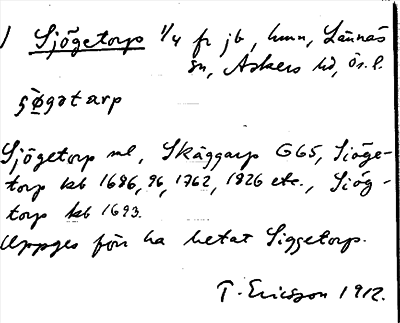 ) Sjögetorp 1/4 fr jb, hmn, Lännäs
sn, Askers hd, ös. l.
ʂø̀gətarp
Sjögetorp ml, Skäggarp G65, Siöge-
torp kb 1686, 96, 1762, 1826 etc., Siög-
torp kb 1693.
Uppges förr ha hetat Siggetorp.
T. Ericsson 1912.